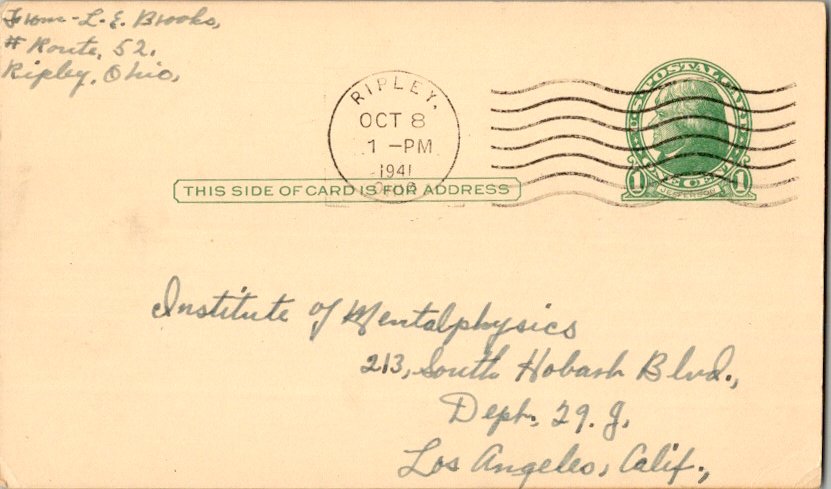 From-L.E. Brooks,
# Route, 52.
Ripley, Ohio,
RIPLEY,
OCT 8
1 -PM
1941
OHIO
U.S. POSTAL CARD
1 CENT 1
JEFFERSON
THIS SIDE OF CARD IS FOR ADDRESS
Institute of Mentalphysics
213, South Hobart Blvd.,
Dept. 29. J.
Los Angeles, Calif.,